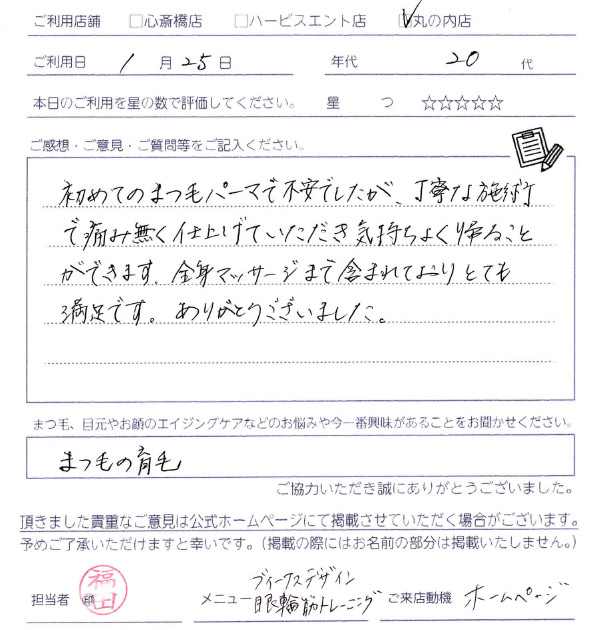 ご利用店舗 □心斎橋店 □ハービスエント店 ☑丸の内店
ご利用日 1月25日 年代 20代
本日のご利用を星の数で評価してください。 星 つ ☆☆☆☆☆
ご感想・ご意見・ご質問等をご記入ください。
初めてのまつ毛パーマで不安でしたが、丁寧な施術
で痛み無く仕上げていただき気持ちよく帰ること
ができます。全身マッサージまで含まれておりとても
満足です。ありがとうございました。
まつ毛、目元やお顔のエイジングケアなどのお悩みや今一番興味があることをお聞かせください。
まつ毛の育毛
ご協力いただき誠にありがとうございました。
頂きました貴重なご意見は公式ホームページにて掲載させていただく場合がございます。
予めご了承いただけますと幸いです。（掲載の際にはお名前の部分は掲載いたしません。）
担当者 ㊞ 福田 メニュー ブイークスデザイン
眼輪筋トレーニング ご来店動機 ホームページ